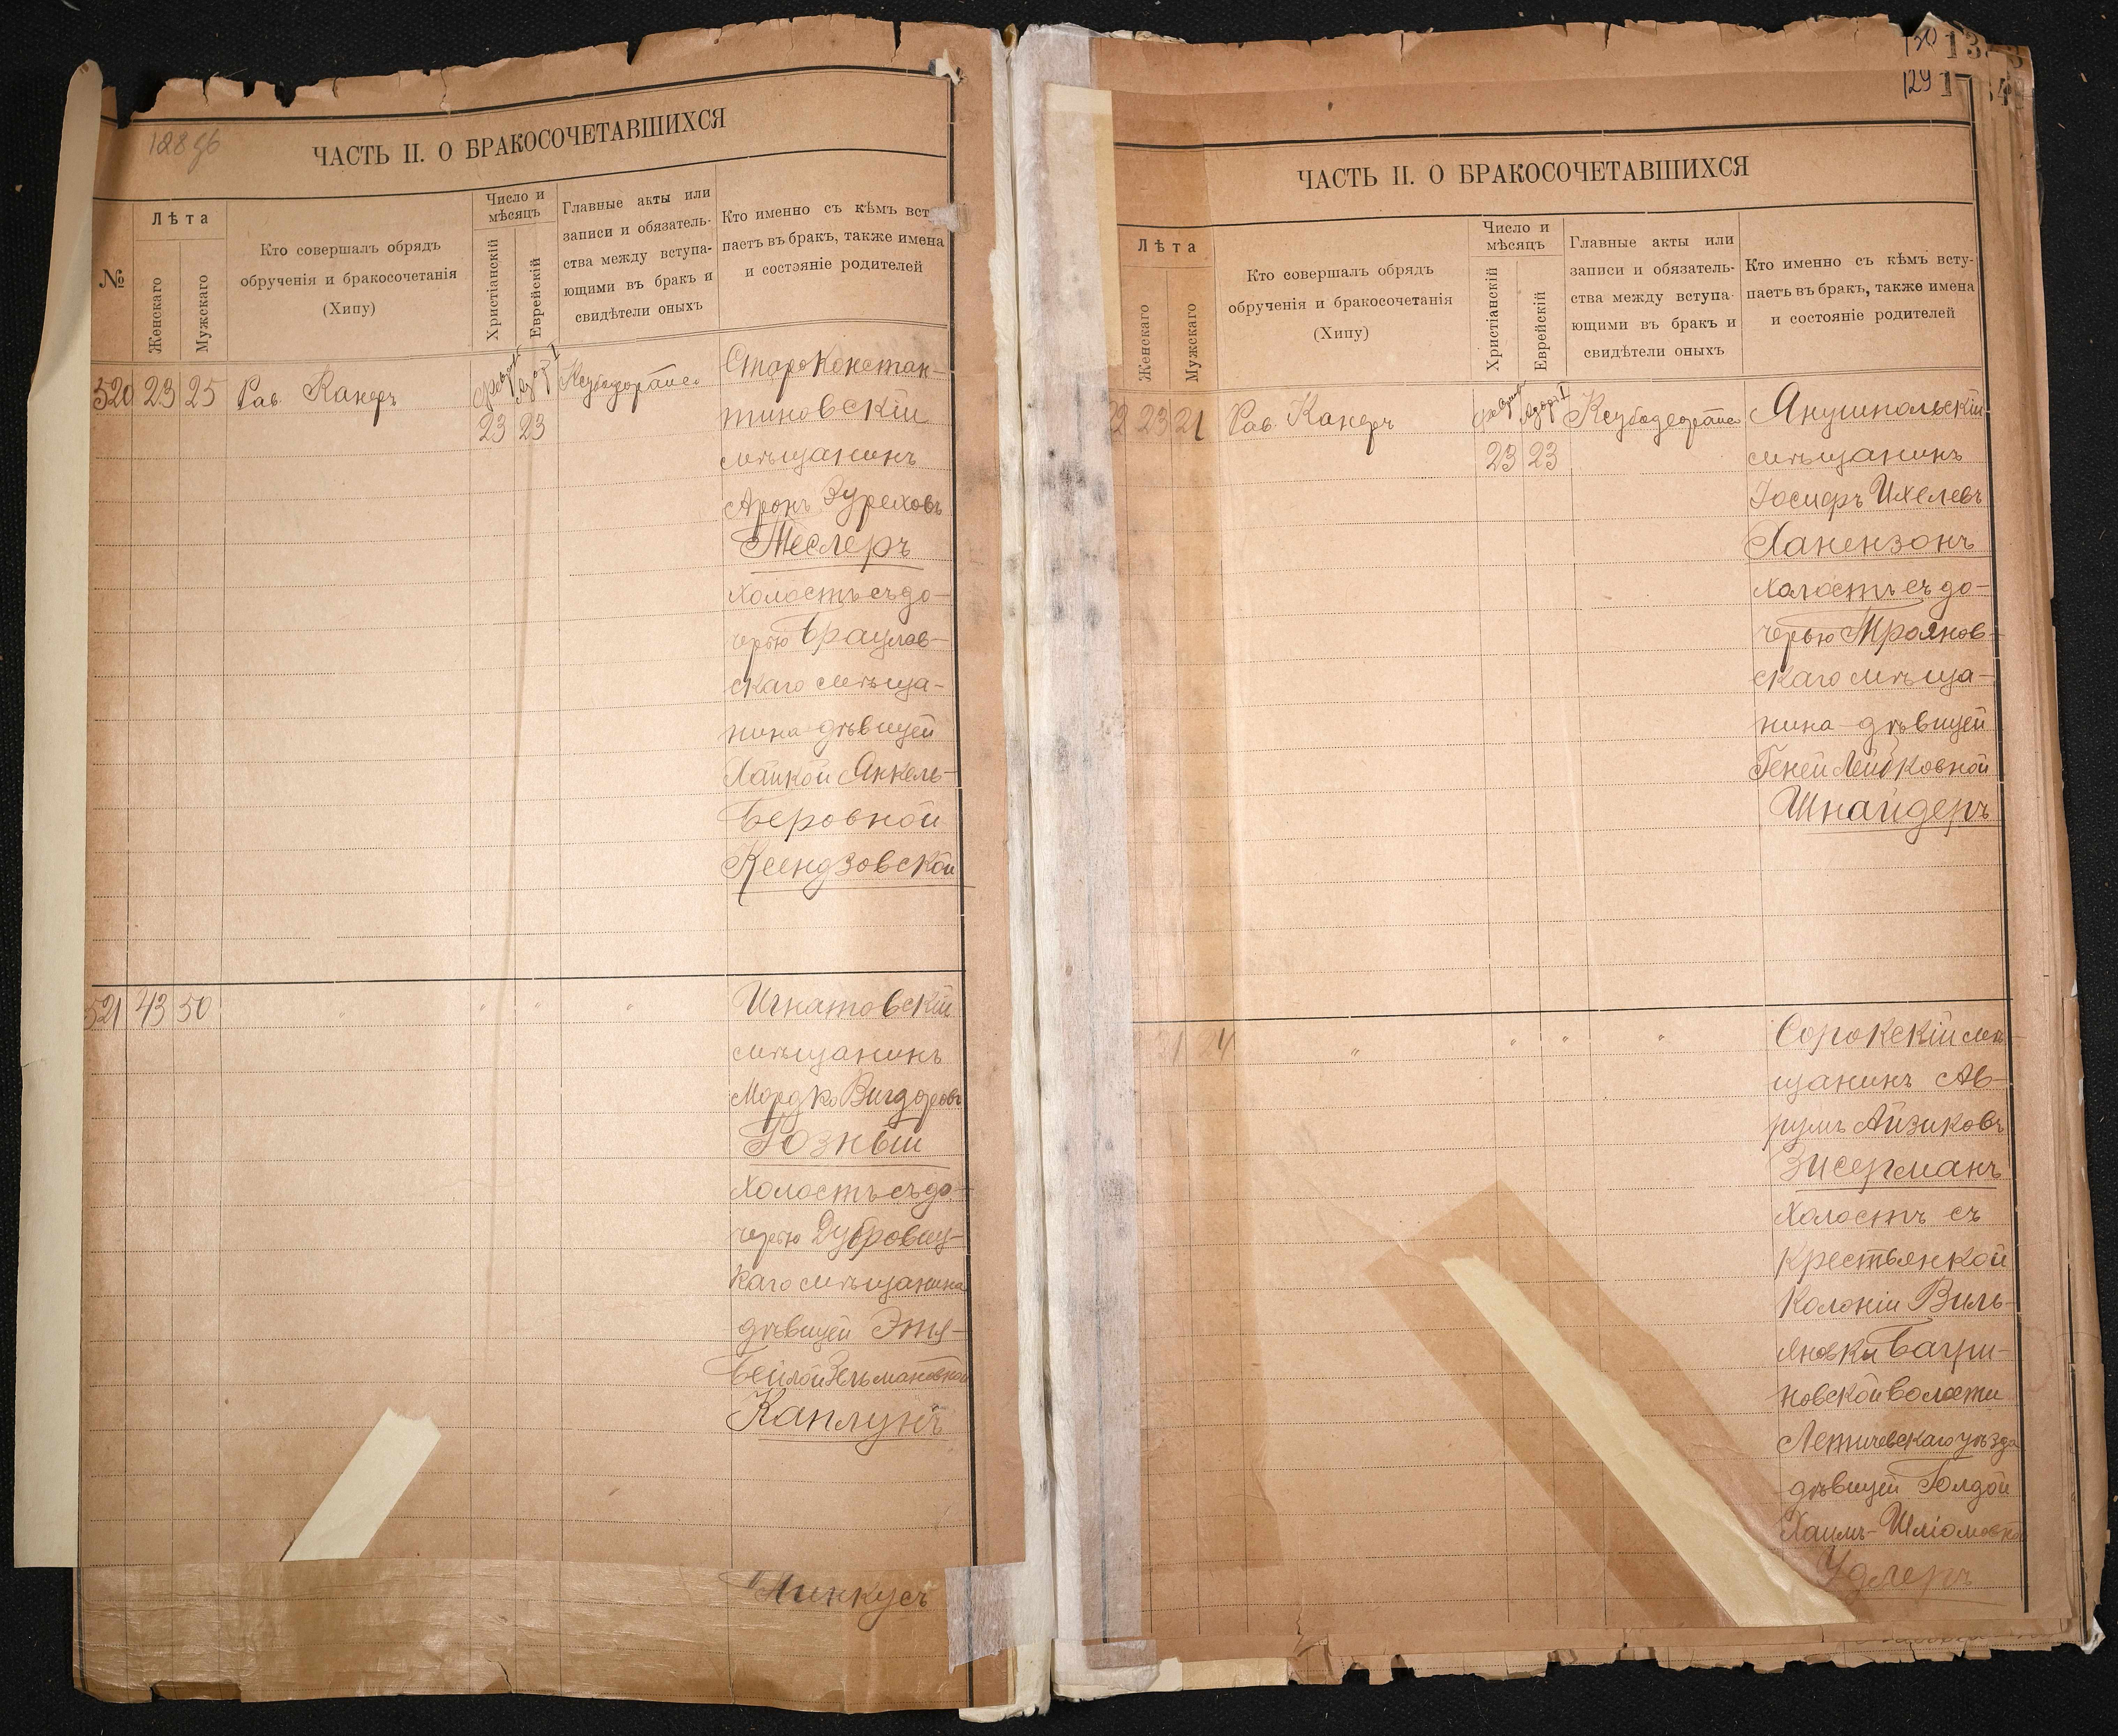 128 об
ЧАСТЬ II. О БРАКОСОЧЕТАВШИХСЯ
№
Лѣта
Женскаго
Мужскаго
Кто совершалъ обрядъ
обрученія и бракосочетанія
(Хипу)
Число и
мѣсяцъ
Христіанскій
Еврейскій
Главные акты или
записи и обязатель-
ства между вступа-
ющими въ бракъ и
свидѣтели оныхъ
Кто именно съ кѣмъ вст
паетъ въ бракъ, также имена
и состояніе родителей
520 23 25 Рав. Канеръ
23 23
Староконстан-
тиновскій
мѣщанинъ
Аронъ
Теслеръ
холостъ съ до-
черью Брацлав-
скаго мѣща-
нина дѣвицей
Хайкой Янкель-
Беровной
Ксендзовской
521 43 50 " " " "
Игнатовскій
мѣщанинъ
Мордко Вигдоровъ
Гозный
холостъ съ до-
черью Дубровиц-
каго мѣщанина
дѣвицей Этя-
Бейлой Зельмановной
Каплунъ
Пинкусъ
130
129
ЧАСТЬ II. О БРАКОСОЧЕТАВШИХСЯ
Лѣта
Женскаго
Мужскаго
Кто совершалъ обрядъ
обрученія и бракосочетанія
(Хипу)
Число и
мѣсяцъ
Христіанскій
Еврейскій
Главные акты или
записи и обязатель-
ства между вступа-
ющими въ бракъ и
свидѣтели оныхъ
Кто именно съ кѣмъ всту-
паетъ въ бракъ, также имена
и состояніе родителей
22 23 21 Рав. Канеръ
23 23
Янушпольскій
мѣщанинъ
Іосифъ Ихелевъ
Ханензонъ
холостъ съ до-
черью Трояновскаго
скаго мѣща-
нина дѣвицей
Геней Лейбковной
Шнайдеръ
24 " " " "
Сорокскій мѣ-
щанинъ Ав-
румъ Айзиковъ
Зисерманъ
холостъ съ
крестьянкой
колоніи Виль-
яновки Багри-
новской волости
Летичевскаго уѣзда
дѣвицей Голдой
Хаимъ-Шліомовной
Удлеръ